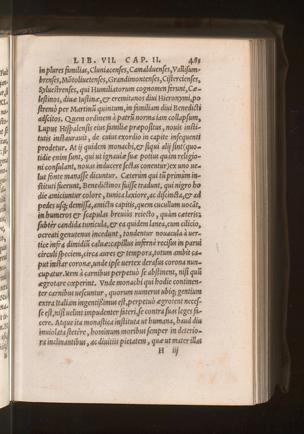 LIB. VII. CAP. II. 485
in plures familias, Cluniacenses, Camaldulenses, Vallisum-
brenses, Mõtoliuetenses, Grandimontenses, Cistercienses,
Syluestrenses, qui Humiliatorum cognomen ferunt, Cæ-
lestinos, diuæ Iustinæ, & eremitanos diui Hieronymi, po
stremò per Martinũ quintum, in familiam diui Benedicti
adscitos. Quem ordinem à patrũ norma iam collapsum,
Lupus Hispalensis eius familiæ præpositus, nouis insti-
tutis instaurauit, de cuius exordio in capite insequenti
prodetur. At ij quidem monachi, & siqui alij sint (quo-
tidie enim sunt, qui ut ignauiæ suæ potius quàm religio-
ni consulant, nouas inducere sectas conentur) ex uno ue-
lut fonte manasse dicuntur. Cæterùm qui tũ primùm in-
stituti fuerunt, Benedictinos fuisse tradunt, qui nigro ho
die amiciuntur colore, tunica laxiore, ac disſincta, & ad
pedes usq; demissa, amictu capitis, quem cucullum uocãt,
in humeros & scapulas breuius reiecto, quàm cæteris:
subtèr candida tunicula, & ea quidem lanea, cum cilicio,
ocreati genutenus incedunt, tondentur nouacula à uer-
tice infra dimidiũ caluæ: capillus infernè recisus in parui
circuli speciem, circa aures & tempora, totum ambit ca-
put instar coronæ, unde ipse uertex derasus corona nun-
cupatur. Verũ à carnibus perpetuò se abstinent, nisi quũ
ægrotare cœperint. Vnde monachi qui hodie continen-
ter carnibus uescuntur, quorum numerus ubiq; gentium
extra Italiam ingentissimus est, perpetuò ægrotent neces-
se est, nisi uelint impudenter fateri, se contra suas leges fa-
cere. Atque ita monastica instituta ut humana, haud diu
inuiolata stetêre, hominum moribus semper in deterio-
ra inclinantibus, ac diuitijs pietatem, quæ ut mater illas
H iij